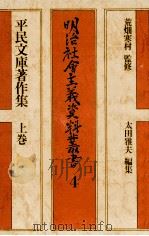 荒畑寒村 監修
太田雅夫 編集
明治社會主義資料叢書
4
平民文庫著作集
上巻